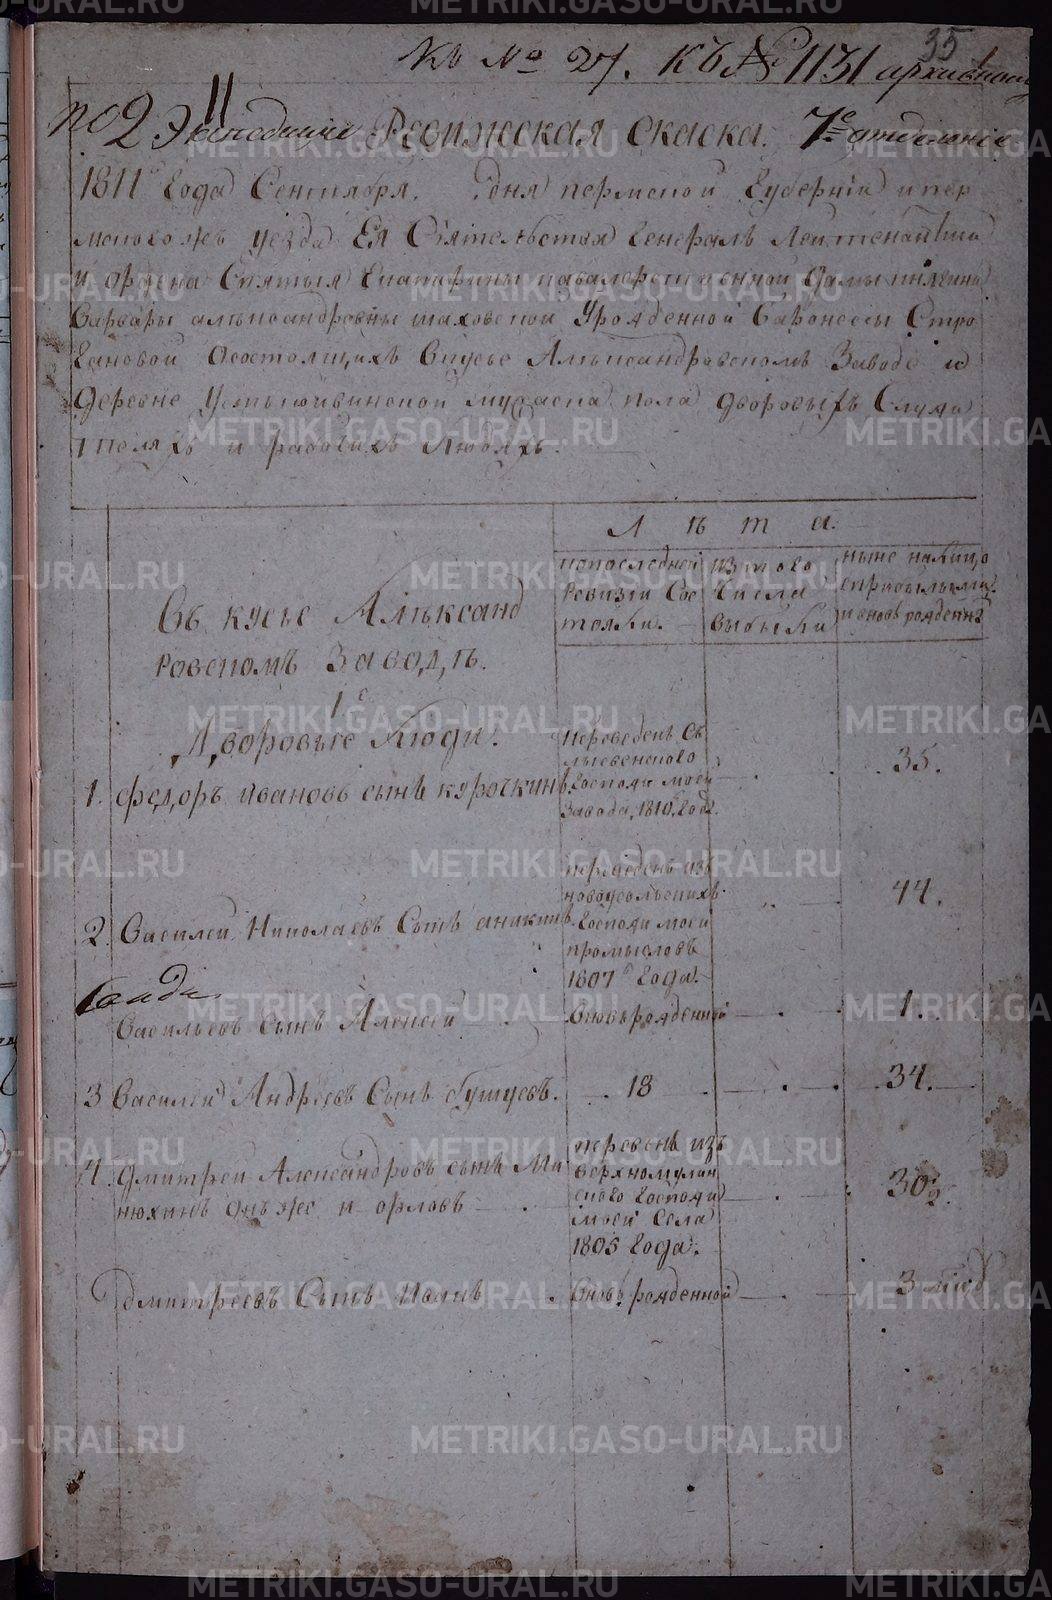 35
Къ № 27. Къ № 1131 архивному
по 2 Экспедиціи Ревижская скаска. 7е отделеніе
11
1811 года Сентября. дня пермской Губерніи и пер
мскогожъ уезда Ея Сіятельства Генералъ Леитенантши
и ордена Святыя Екатерины кавалерственной дамы княгини
Варвары Александровны шаховской Урожденной Баронессы Стро
гановой Осостоящихъ Вкусье Александровскомъ Заводе и
деревне Устькоивинской мужеска пола дворовыхъ Служи
теляхъ и рабочихъ Людяхъ.
Л ѣ т а.
попоследней Ревизіи Сос тояли.
изтого Числа выбыли
ныне налицо сприбылыми и вновь рожденн
Съ кусье Алѣксанд
ровскомъ Заводѣ.
1е
Дворовые Люди.
1. Федоръ ивановъ сынъ курочкинъ
Переведенъ Съ лысвенского Госпожи моей Завода, 1810, Году.
35.
2. Василеи Николаевъ Сынъ аникинъ
переведенъ изъ новоусольскихъ Госпожи моеи промысловъ 1807 Года.
44.
Васильевъ Сынъ Алексеи
Вновьрожденной
1.
3 Василеи Андреевъ Сынъ бутусовъ.
18
34.
4. Дмитреи Александровъ сынъ Ма
нюхинъ онъ же и орловъ
переведенъ изъ верхномулин ского Госпожи моеи Села 1805 Года.
30 1/2.
Дмитреевъ Сынъ Иванъ
Вновь рожденной
3 мцъ
METRIKI.GASO-URAL.RU